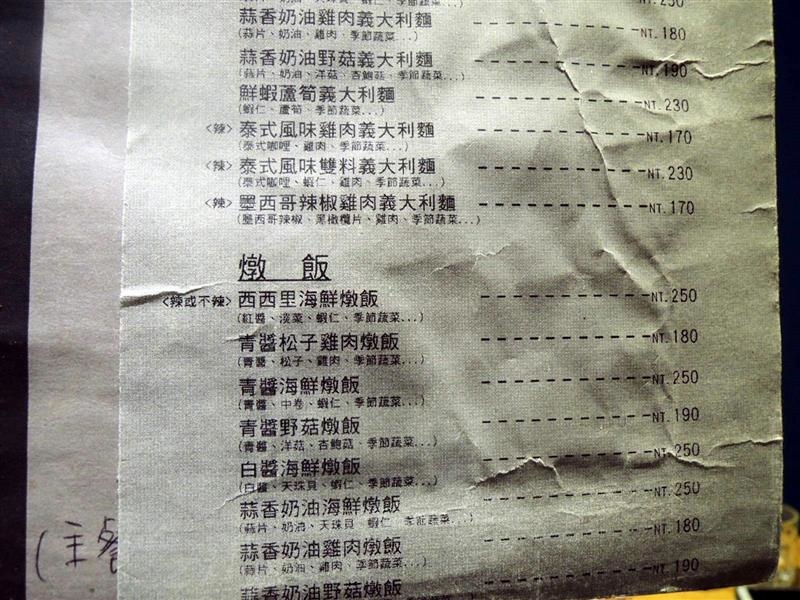 蒜香奶油雞肉義大利麵 NT.180
(蒜片、奶油、雞肉、季節蔬菜...)
蒜香奶油野菇義大利麵 NT.190
(蒜片、奶油、洋菇、杏鮑菇、季節蔬菜...)
鮮蝦蘆筍義大利麵 NT.230
(蝦仁、蘆筍、季節蔬菜...)
<辣> 泰式風味雞肉義大利麵 NT.170
(泰式咖哩、雞肉、季節蔬菜...)
<辣> 泰式風味雙料義大利麵 NT.230
(泰式咖哩、蝦仁、雞肉、季節蔬菜...)
<辣> 墨西哥辣椒雞肉義大利麵 NT.170
(墨西哥辣椒、黑橄欖片、雞肉、季節蔬菜...)
燉 飯
<辣或不辣> 西西里海鮮燉飯 NT.250
(紅醬、淡菜、蝦仁、季節蔬菜...)
青醬松子雞肉燉飯 NT.180
(青醬、松子、雞肉、季節蔬菜...)
青醬海鮮燉飯 NT.250
(青醬、中卷、蝦仁、季節蔬菜...)
青醬野菇燉飯 NT.190
(青醬、洋菇、杏鮑菇、季節蔬菜...)
白醬海鮮燉飯 NT.250
(白醬、天珠貝、蝦仁、季節蔬菜...)
蒜香奶油海鮮燉飯 NT.250
(蒜片、奶油、天珠貝 蝦仁 季節蔬菜...)
蒜香奶油雞肉燉飯 NT.180
(蒜片、奶油、雞肉、季節蔬菜...)
蒜香奶油野菇燉飯 NT.190
(主餐